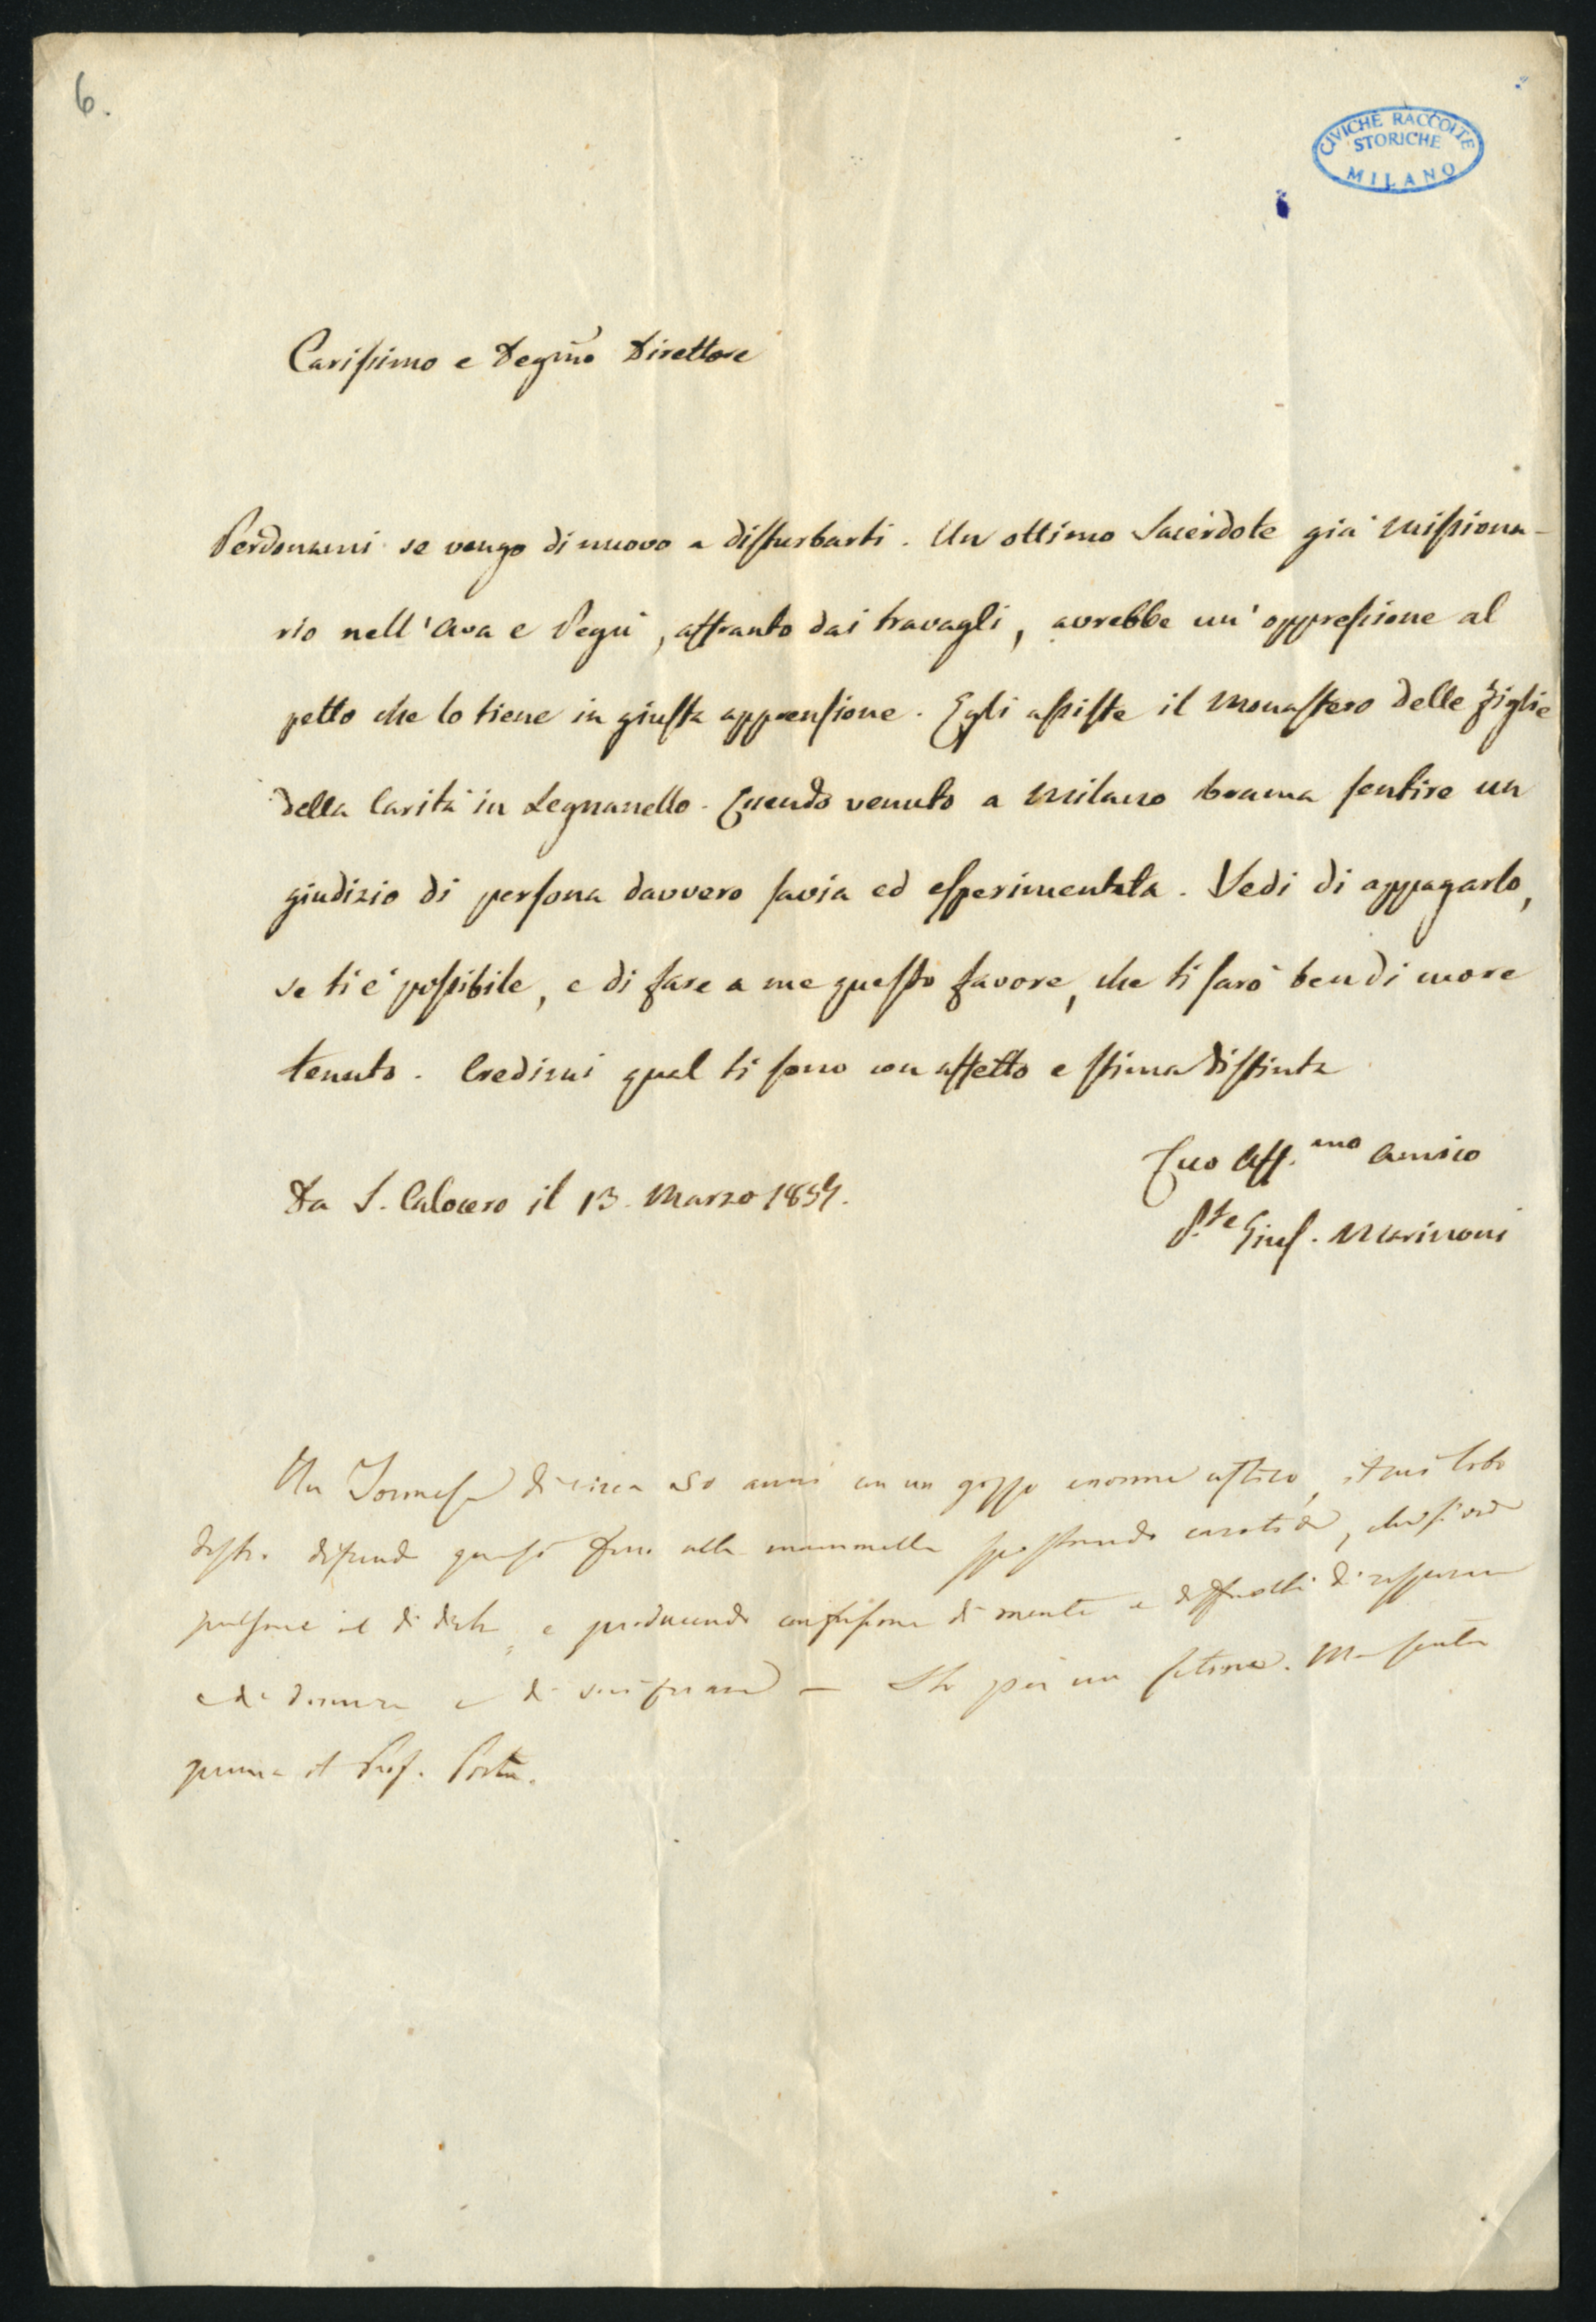 6.
CIVICHE RACCOLTE
STORICHE
MILANO
Carissimo e Degmo Direttore
Perdonami se vengo di nuovo a disturbarti. Un ottimo Sacerdote già Missiona-
rio nell'Ava e Pegù, affranto dai travagli, avrebbe un'oppressione al
petto che lo tiene in giusta apprensione. Egli assiste il Monastero delle Figlie
della Carità in Legnanello. Essendo venuto a Milano brama sentire un
giudizio di persona davvero savia ed esperimentata. Vedi di appagarlo,
se ti è possibile, e di fare a me questo favore, che ti sarò ben di cuore
tenuto. Credimi qual ti sono con affetto e stima distinta
Tuo Aff.mo Amico
Da S. Calocero il 13. Marzo 1854.
P.te Gius. Marinoni
Un di circa 50 anni con un gozzo enorme il cui lobo
destro quasi fino alla mammella spostando carotide,
e producendo confusione di mente e difficoltà di
e di e di — Ha poi un
prima il Prof. Porta.